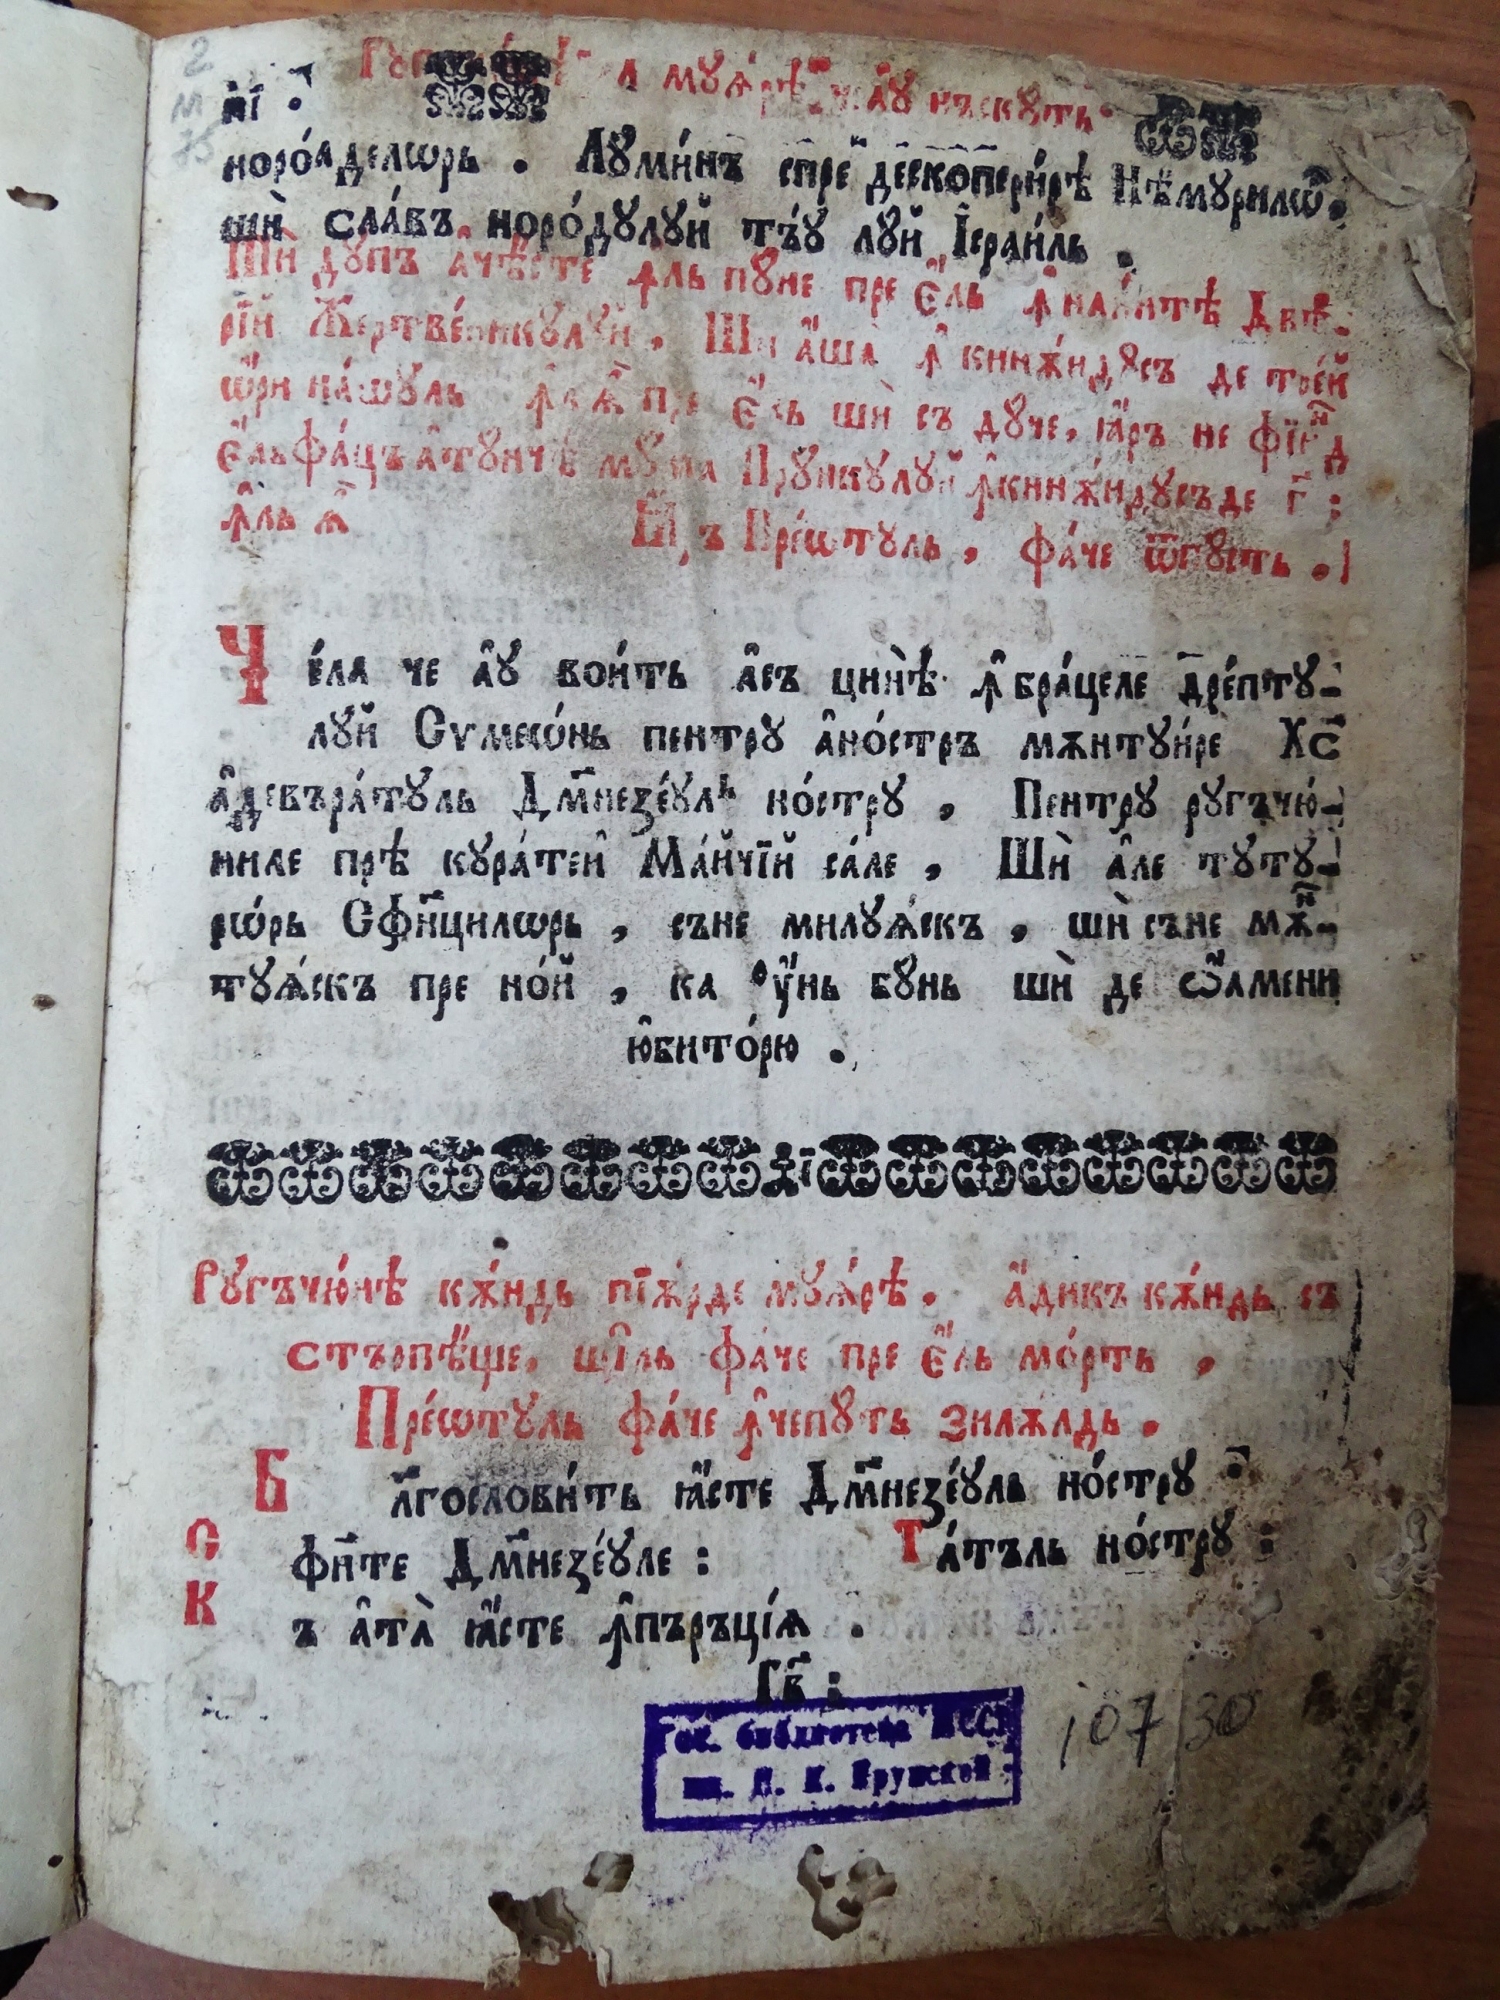 2
м
75
л муꙗ́рѣ че а҆у нъскуть
ні
норо́аделѡрь . Лꙋми́нъ спре дескопери́рѣ Нѣмꙋрилѡ,
ши̏ сла́въ норо́дꙋлꙋй тъ́ꙋ лꙋй І҆сраи́ль .
Ши̏ дꙋпъ а҆чѣ́сте ꙟ҆ль пꙋне пре є҆́ль ꙟ҆наи́нтѣ Двѣ-
рїй Же́ртвеникꙋлꙋй , Ши а҆ша̀ ꙟ҆книжи́ндꙋсъ де трей
ѡ҆ри на́шꙋль пре є҆́ль ши̏ съ дꙋче, ꙗ҆ръ не фїинд
є҆́ль фа́цъ а҆тꙋнчѣ мꙋма Прꙋнкꙋлꙋй ꙟ҆книжи́ндꙋсъ де г҃ :
ꙟ҆ль ꙗ҆ Ꙗ҆ръ Пре́ѡтꙋль , фа́че ѿпꙋсть .
Че́ла че а҆ꙋ вои́ть а҆съ цинѣ̀ ꙟ҆ бра́целе дре́птꙋ-
лꙋй Сѵмеѡ́нь пентрꙋ а҆но́стръ мѫнтꙋи́ре Хс҃
а҆девъра́тꙋль Дм҃незе́ꙋль но́стрꙋ , Пентрꙋ рꙋгъчю́-
ниле прѣ кꙋра́тей Ма́йчїй са́ле , Ши̏ а҆ле тꙋтꙋ-
рѡ́рь Сфи҃нцилѡрь , съне милꙋꙗ́скъ , ши̏ съне мѫн-
тꙋꙗ́скъ пре но́й , ка ᲂу҆нь бꙋнь ши̏ де ѡ҆́амени
ю҆бито́рю .
Рꙋгъчю́нѣ кѫ́ндь пїꙗ́рде мꙋꙗ́рѣ , а҆́дикъ кѫ́ндь съ
стърпѣ́ще, шїль фа́че пре є҆́ль мо́рть ,
Пре́ѡтꙋль фа́че ꙟ҆чепꙋть зикѫ́ндь .
Бл҃гослови́ть ꙗ҆́сте Дм҃незе́ꙋль но́стрꙋ :
Сфи҃нте Дм҃незе́ꙋле : Та́тъль но́стрꙋ :
Къ а҆та̀ ꙗ҆́сте ꙟ҆пъръці́ꙗ .
Гв҃ :
Гос. библиотека МССР
им. Н. К. Крупской
107 30